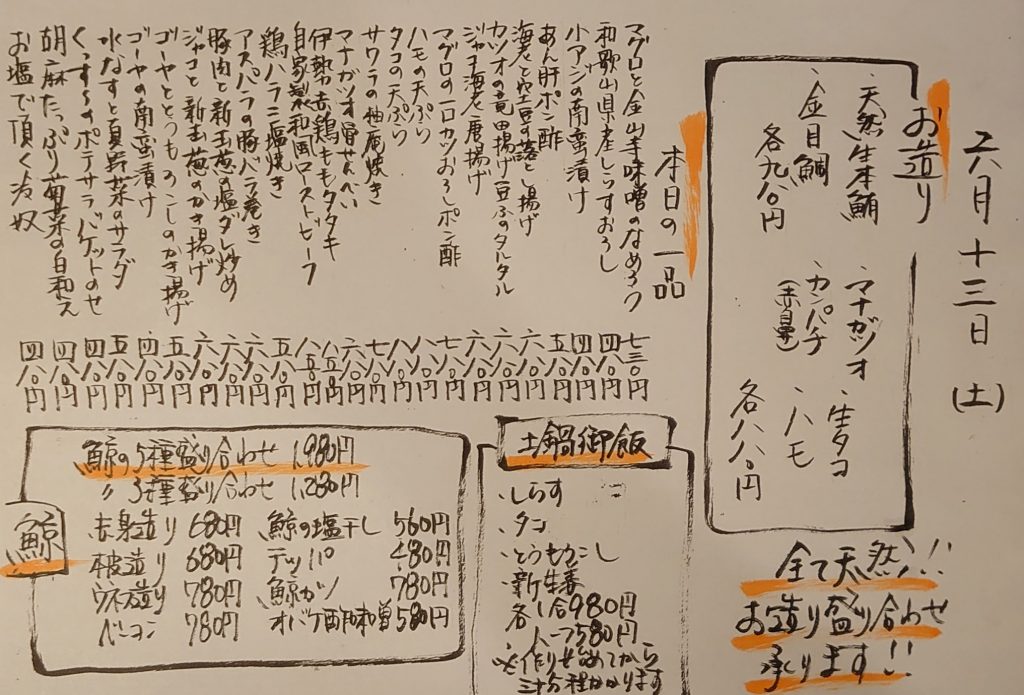 六月十三日(土)
お造り
・天然生本鮪
・金目鯛
各九八〇円
・マナガツオ
・カンパチ
(赤目果)
・生タコ
・ハモ
各八八〇円
全て天然!!
お造り盛り合わせ
承ります!!
本日の一品
マグロと金山寺味噌のなめろう 七三〇円
和歌山県産しらすおろし 四八〇円
小アジの南蛮漬け 四八〇円
あん肝ポン酢 五八〇円
海老と空豆の落とし揚げ 六八〇円
カツオの竜田揚げ豆ふのタルタル
ジャコ海老唐揚げ
マグロの一口カツおろしポン酢
タコの天ぷら
ハモの天ぷら
サワラの柚庵焼き
マナガツオ骨せんべい
伊勢赤鶏ももタタキ
自家製和風ローストビーフ
鶏ハラミ塩焼き 五八〇円
アスパラの豚バラ巻き 六八〇円
豚肉と新玉葱の塩ダレ炒め 六八〇円
ジャコと新玉葱のかき揚げ 六八〇円
ゴーヤととうもろこしのかき揚げ 五八〇円
ゴーヤの南蛮漬け 四八〇円
水なすと夏野菜のサラダ 五八〇円
くっすすのポテサラバケットのせ 四八〇円
胡麻たっぷり菊菜の白和え 四八〇円
お塩で頂く冷奴 四八〇円
土鍋御飯
・しらす
・タコ
・とうもろこし
・新生姜
各一合980円
人一つ580円
※作りせ始めてから
三十分程かかります
鯨
鯨の5種盛り合わせ 1,980円
〃3種盛り合わせ 1,280円
赤身造り 680円 鯨の塩干し 560円
本皮造り 680円 テッパ 480円
ウネス造り 780円 鯨カツ 780円
ベーコン 780円 オバケ酢味噌 580円